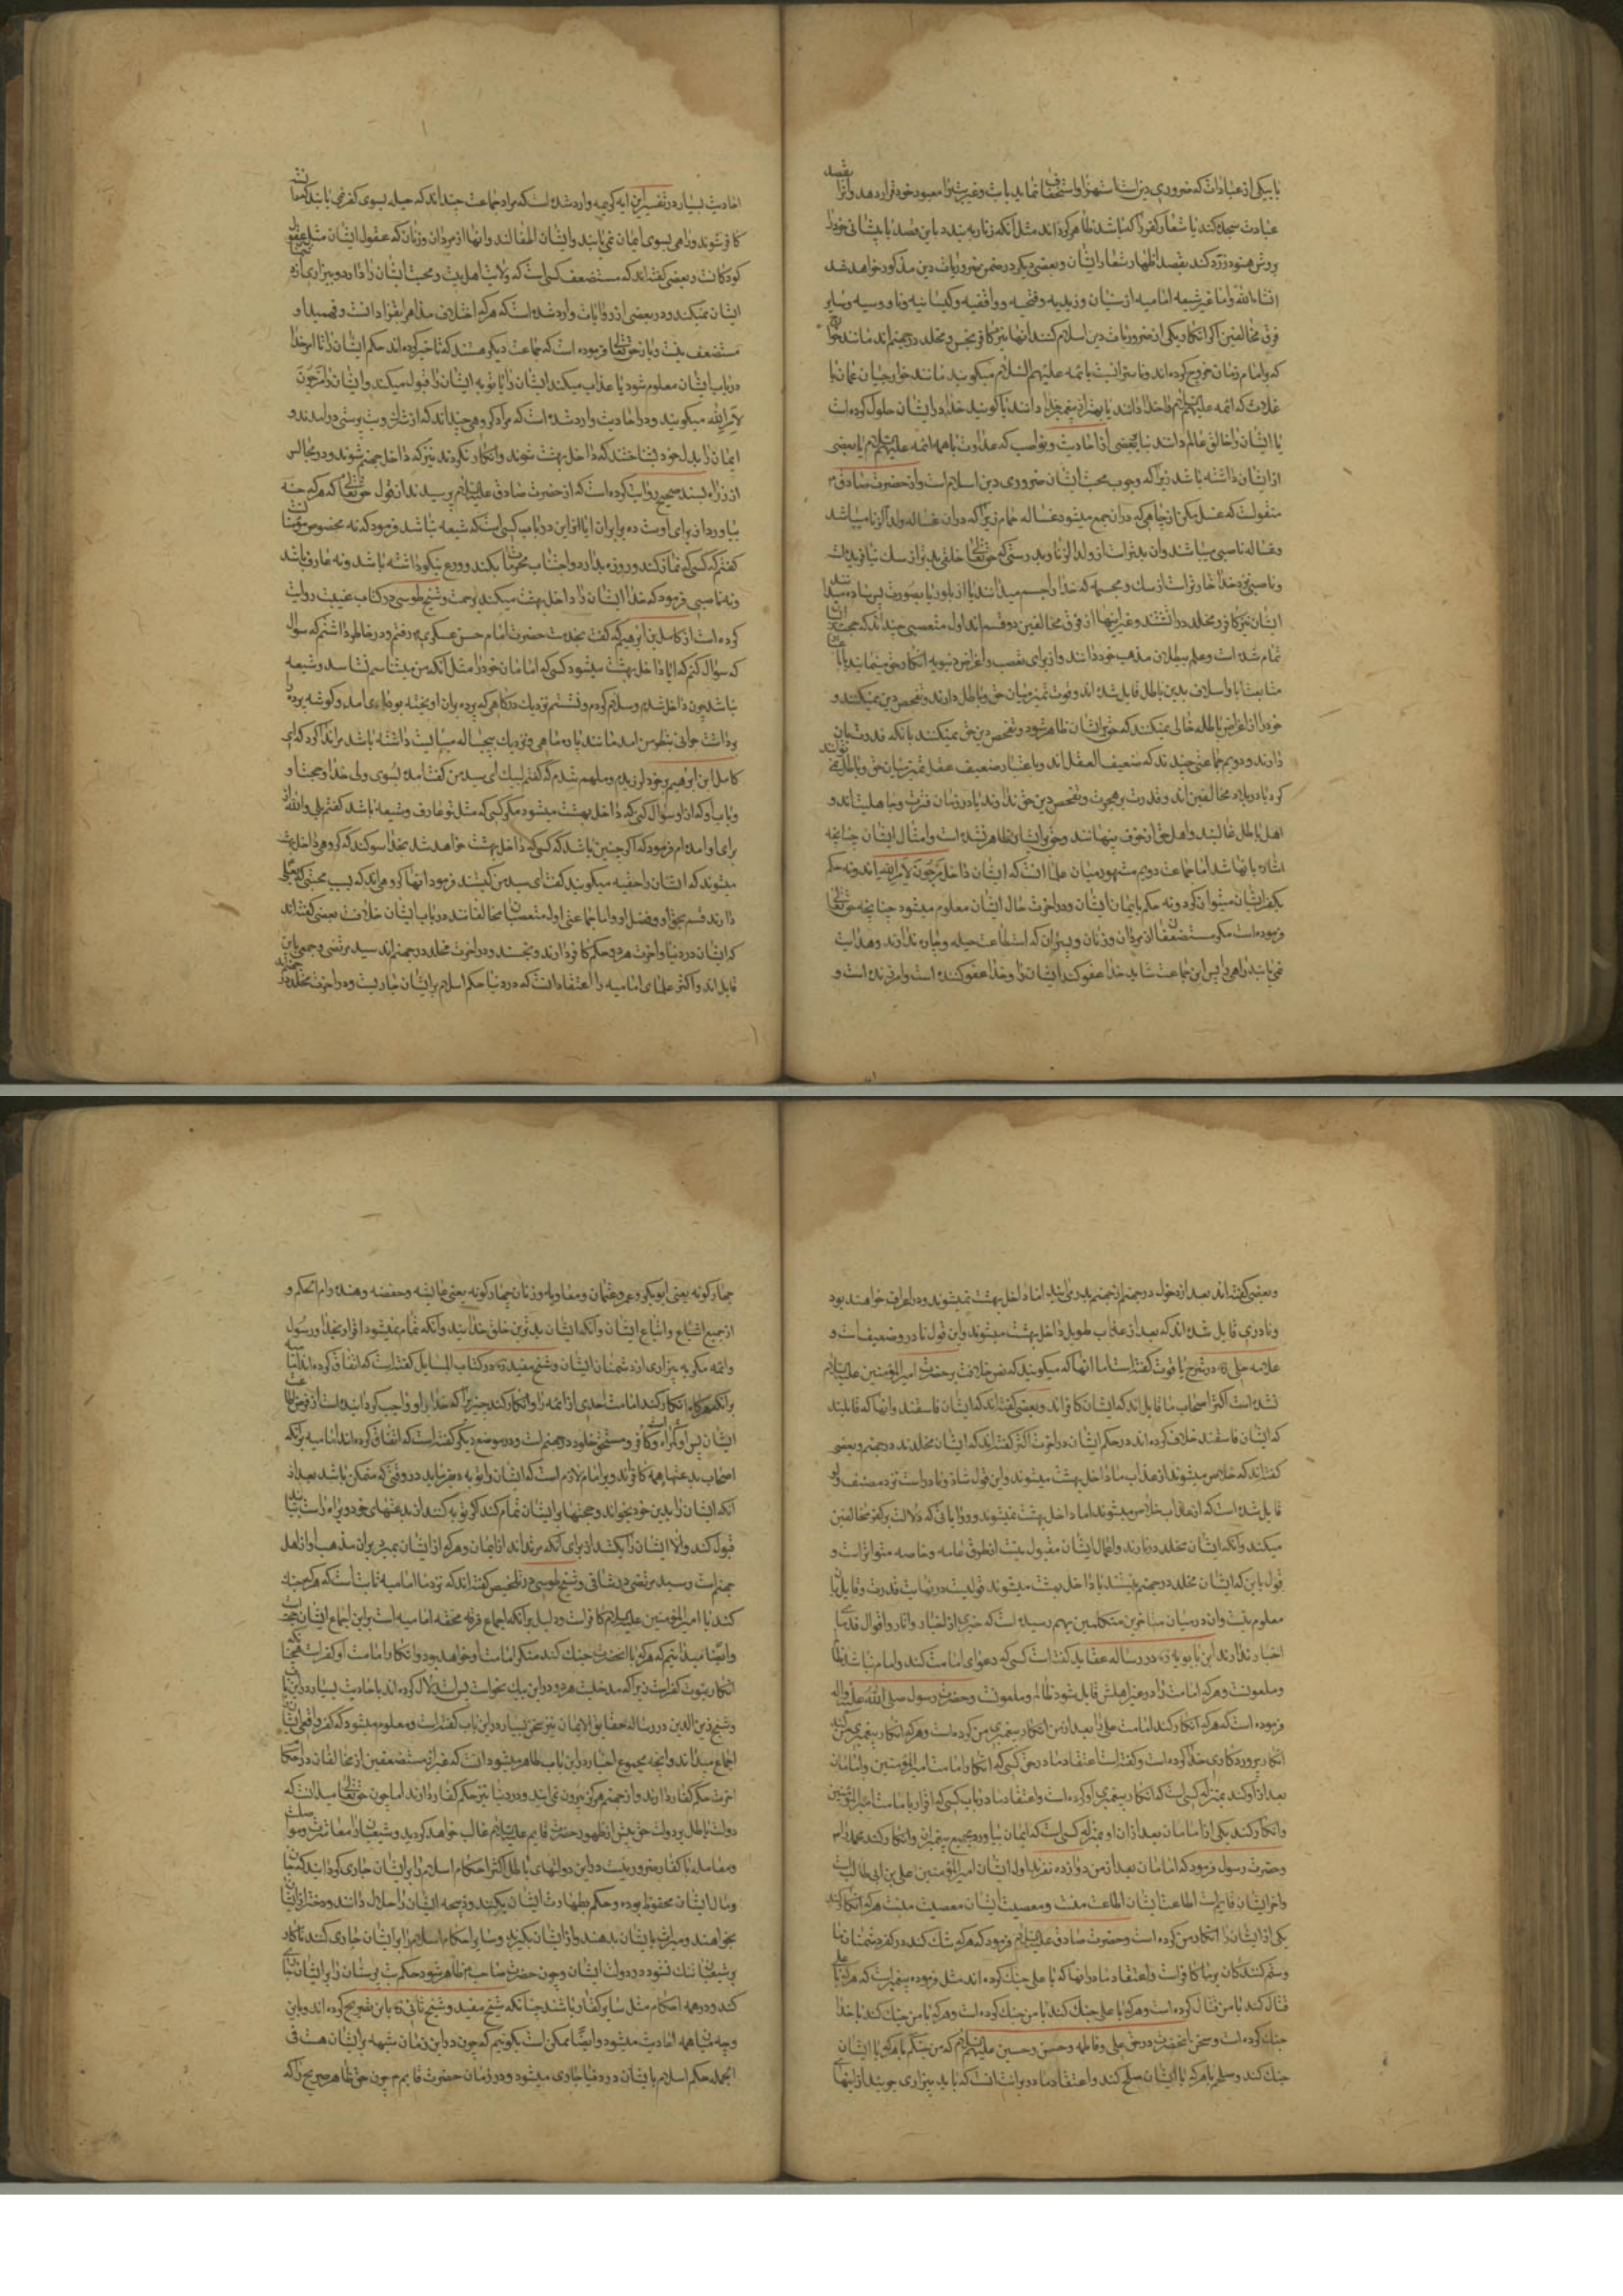 یا بیکی از عبادات که ضروری دین است استهزا و استخفاف نماید یا بت و غیر بت را معبود خود قرار دهد و آنرا بقصد
عبادت سجده کند یا شعار کفر را که باشد ظاهر کرداند مثل آنکه زنار به بندد باین قصد یا پیشانی خود را
بروش هنود زرد کند بقصد اظهار شعار ایشان و بعضی دیکر در ضمن ضروریات دین مذکور خواهد شد
انشاء الله و اما غیر شیعه امامیه از سنیان و زیدیه و فطحیه و واقفیه و کیسانیه و ناووسیه و سایر
فرق مخالفین اکر انکار یکی از ضروریات دین اسلام کنند آنها نیز کافر و نجس و مخلد در جهنم اند مانند خوارج
که با امام زمان خروج کرده اند و ناسزا نسبت بائمه علیهم السلام میکویند مانند خوارجیان عمان یا
غلات که ائمه علیهم السلام را خدا دانند یا بهتر از پیغمبر دانند یا کویند خدا در ایشان حلول کرده است
یا ایشان را خالق عالم دانند بنا ببعضی از احادیث و نواصب که عداوت با همه ائمه علیهم السلام یا بعضی
از ایشان داشته باشد زیرا که وجوب محبت ایشان ضروری دین اسلام است و از حضرت صادق
منقولست که غسل مکن از چاهی که در آن جمع میشود غساله حمام زیرا که در آن غساله ولد الزنا میباشد
و غساله ناصبی میباشد و آن بدتر است از ولد الزنا و بدرستی که حق تعالی خلقی بدتر از سک نیافریده است
و ناصبی نزد خدا خوارتر است از سک و مجسمه که خدا را جسم میدانند یا از بلور یا بصورت پسر ساده میدانند
ایشان نیز کافر و مخلد در آتشند و غیر اینها از فرق مخالفین دو قسم اند اول متعصبی چند اند که حجت بر ایشان
تمام شده است و علم ببطلان مذهب خود دارند و از برای تعصب و اغراض دنیویه انکار حق مینمایند یا
متابعت آبا و اسلاف بدین باطل قایل شده اند و قوت تمیز میان حق و باطل دارند و تفحص دین نمیکنند و
خود را از اغراض باطله خالی نمیکنند که حق بر ایشان ظاهر شود و تفحص دین حق نمیکنند با آنکه قدرت بر آن
دارند و دویم جماعتی چند اند که ضعیف العقل اند و باعتبار ضعیف عقل تمیز میان حق و باطل نمی توانند
کرد یا در بلاد مخالفین اند و قدرت بر هجرت و تفحص دین حق ندارند یا در زمان فترت و جاهلیت اند و
اهل باطل غالبند و اهل حق از خوف پنهانند و حق بر ایشان ظاهر نشده است و امثال ایشان چنانچه
اشاره بانها شد اما جماعت دویم مشهور میان علما انست که ایشان داخل مرجون لامر الله اند و نه حکم
بکفر ایشان میتوان کرد و نه حکم بایمان ایشان و در آخرت حال ایشان معلوم میشود چنانچه حق تعالی
فرموده است مکر مستضعفان از مردان و زنان و پسران که استطاعت حیله و چاره ندارند و هدایت
نمی یابند راهی را پس این جماعت شاید خدا عفو کند ایشان را و خدا عفو کننده است و آمرزنده است و
احادیث بسیار در تفسیر این آیه کریمه وارد شده است که مراد جماعت چند اند که حیله بسوی کفر نمی یابند که
کافر شوند و راهی بسوی ایمان نمی یابند و ایشان اطفالند و آنها از مردان و زنان که عقول ایشان مثل عقول
کودکانست و بعضی کفته اند که مستضعف کسی است که ولایت اهل بیت و محبت ایشان را دارد و بیزاری از دشمنان
ایشان نمیکند و در بعضی از روایات وارد شده است که هر که اختلاف مذاهب را دانست و فهمید او
مستضعف نیست و باز حق تعالی فرموده است که جماعت دیکر هستند که تاخیر کرده اند حکم ایشان را تا امر خدا
در باب ایشان معلوم شود یا عذاب میکند ایشان را یا توبه ایشان را قبول میکند و ایشان را مرجون
لامر الله میکویند و در احادیث وارد شده است که مراد کروهی چند اند که از شرک و بت پرستی در آمدند و
ایمان را بدل خود نشناختند که داخل بهشت شوند و انکار نکردند نیز که داخل جهنم شوند و در مجالس
از زراره بسند صحیح روایت کرده است که از حضرت صادق علیه السلام پرسیدند از قول حق تعالی که هر که حسنه
بیاورد از برای اوست ده برابر آن آیا از این دو باب کسی است که شیعه نباشد فرمود که نه مخصوص مؤمنان است
کفتم که کسی که نماز کند و روزه بدارد و اجتناب محرمات بکند و ورع نیکو داشته باشد و نه عارف باشد
و نه ناصبی فرمود که خدا ایشان را داخل بهشت میکند برحمت و شیخ طوسی در کتاب غیبت روایت
کرده است از کامل بن ابراهیم که کفت بخدمت حضرت امام حسن عسکری رفتم و در خاطر داشتم که سؤال
که سؤال کنم که آیا داخل بهشت میشود کسی که امامان خود را مثل آنکه من میشناسم نشناسد و شیعه
نباشد چون داخل شدم و سلام کردم و نشستم نزدیک درکاهی که پرده بران آویخته بود بادی آمد و کوشه پرده
برداشت جوانی بنظر من آمد مانند پاره ماهی و نزدیک بچهار ساله میبایست داشته باشد مرا ندا کرد که ای
کامل ابن ابراهیم بر خود لرزیدم و ملهم شدم که کفتم لبیک ای سید من کفت آمده بسوی ولی خدا و حجت او
و باب او که از او سؤال کنی که داخل بهشت میشود مکر کسی که مثل تو عارف و شیعه باشد کفتم بلی والله از
برای او آمده ام فرمود که اکر چنین باشد که کسی که داخل بهشت خواهد شد بخدا سوکند که کروهی داخل بهشت
میشوند که ایشان را حقیه میکویند کفت ای سید من کیستند فرمود آنها کروهی اند که بسبب محبتی که بعلی
دارند قسم بحق او و فضل او و اما جماعتی اول متعصبان مخالفانند در باب ایشان خلافست بعضی کفته اند
که ایشان در دنیا و آخرت هر دو حکم کافر دارند و نجسند و در آخرت مخلد در جهنم اند سید مرتضی و جمعی باین
قایل اند و اکثر علمای امامیه را اعتقاد آنست که در دنیا حکم اسلام بر ایشان جاریست و در آخرت مخلد در جهنم اند
و بعضی کفته اند بعد از دخول در جهنم از جهنم بدر می آیند اما داخل بهشت نمیشوند و در اعراف خواهند بود
و نادری قایل شده اند که بعد از عذاب طویل داخل بهشت میشوند و این قول نادر و ضعیف است و
علامه حلی در شرح یاقوت کفته است اما آنها که میکویند که نص خلافت بر حضرت امیر المؤمنین علیه السلام
نشده است اکثر اصحاب ما قایل اند که ایشان کافر اند و بعضی کفته اند که ایشان فاسقند و آنها که قایلند
که ایشان فاسقند خلاف کرده اند در حکم ایشان در آخرت اکثر کفته اند که ایشان مخلدند در جهنم و بعضی
کفته اند که خلاص میشوند از عذاب اما داخل بهشت میشوند و این قول شاذ و نادر است نزد مصنف و او
قایل شده است که از عذاب خلاص میشوند اما داخل بهشت نمیشوند و روایاتی که دلالت بر کفر مخالفین
میکند و آنکه ایشان مخلد در نارند و اعمال ایشان مقبول نیست از طرق عامه و خاصه متواتر است و
قول باین که ایشان مخلد در جهنم نیستند یا داخل بهشت میشوند قولیست در نهایت ندرت و قایل آن
معلوم نیست و آن در میان متاخرین متکلمین بهم رسیده است که خبری از اخبار و آثار و اقوال قدمای
اخبار ندارند ابن بابویه در رساله عقاید کفته است کسی که دعوای امامت کند و امام نباشد ظالم
و ملعونست و هر که امامت را در غیر اهلش قایل شود ظالم و ملعونست و حضرت رسول صلی الله علیه و آله
فرموده است که هر که انکار کند امامت علی را بعد از من انکار پیغمبری من کرده است و هر که انکار پیغمبری من کند
انکار پروردکاری خدا کرده است و کفته است اعتقاد ما در حق کسی که انکار امامت امیر المؤمنین و امامان
بعد از او کند بمنزله کسی است که انکار پیغمبری او کرده است و اعتقاد ما در باب کسی که اقرار بامامت امیر المؤمنین
و انکار کند یکی از امامان بعد از آن او بمنزله کسی است که ایمان بیاورد بجمیع پیغمبران و انکار کند محمد را
و حضرت رسول فرمود که امامان بعد از من دوازده نفرند اول ایشان امیر المؤمنین علی بن ابی طالب است
و آخر ایشان قایم است اطاعت ایشان اطاعت منست و معصیت ایشان معصیت منست هر که انکار کند
یکی از ایشان را انکار من کرده است و حضرت صادق علیه السلام فرمود که هر که شک کند در کفر دشمنان ما
و ستم کنندکان بر ما کافر است و اعتقاد ما در آنها که با علی جنک کرده اند مثل فرموده پیغمبر است که هر که با علی
قتال کند با من قتال کرده است و هر که با علی جنک کند با من جنک کرده است و هر که با من جنک کند با خدا
جنک کرده است و سخن آنحضرت در حق علی و فاطمه و حسن و حسین علیهم السلام که من جنکم با هر که با ایشان
جنک کند و سلم با هر که با ایشان سلح کند و اعتقاد ما در برائت آنست که باید بیزاری جویند از بتهای
چهارکونه یعنی ابوبکر و عمر و عثمان و معاویه و زنان چهارکونه یعنی عایشه و حفصه و هند و ام الحکم و
از جمیع اشیاع و اتباع ایشان و آنکه ایشان بدترین خلق خدایند و آنکه تمام نمیشود اقرار بخدا و رسول
و ائمه مکر به بیزاری از دشمنان ایشان و شیخ مفید در کتاب المسایل کفته است که اتفاق کرده اند امامیه
بر آنکه هر که انکار کند امامت احدی از ائمه را و انکار کند چیزی را که خدا بر او واجب کردانیده است از فرض اطاعت
ایشان پس او کمراه و کافر و مستحق خلود در جهنم است و در موضع دیکر کفته است که اتفاق کرده اند امامیه بر آنکه
اصحاب بدعتها همه کافرند و بر امام لازم است که ایشان را توبه بفرماید در وقتی که متمکن باشد بعد از
آنکه ایشان را بدین خود بخواند و حجتها بر ایشان تمام کند اکر توبه کنند از بدعتهای خود و براه راست بیایند
قبول کند و الا ایشان را بکشد از برای آنکه مرتد اند از ایمان و هر که از ایشان بمیرد بران مذهب او از اهل
جهنم است و سید مرتضی در شافی و شیخ طوسی در تلخیص کفته اند که نزد ما امامیه ثابت است که هر که جنک
کند با امیر المؤمنین علیه السلام کافر است و دلیل بر آنکه اجماع فرقه محقه امامیه است بر این و اجماع ایشان حجت است
و ایضا میدانیم که هر که با آنحضرت جنک کند منکر امامت او خواهد بود و انکار امامت او کفر است همچنانکه
انکار نبوت کفر است زیرا که مدخلیت هر دو در این یک نحو است پس استدلال کرده اند باحادیث بسیار در این باب
و شیخ زین الدین در رساله حقایق الایمان نیز سخن بسیار در این باب کفته است و معلوم میشود که کفر واقعی ایشان را
اجماع میداند و آنچه مجموع اخبار در این باب ظاهر میشود آنست که غیر از مستضعفین از مخالفان در احکام
آخرت حکم کفار دارند و از جهنم هرکز بیرون نمی آیند و در دنیا نیز حکم کفار دارند اما چون حق تعالی میدانست که
دولت باطل بر دولت حق پیش از ظهور حضرت قایم علیه السلام غالب خواهد کردید و شیعیان را معاشرت و مواصلت
و معامله با کفار ضرور نیست در این دولتهای باطل اکثر احکام اسلام را بر ایشان جاری کردانید که جان
و مال ایشان محفوظ بوده و حکم بطهارت ایشان بکنند و ذبیحه ایشان را حلال دانند و دختر از ایشان
بخواهند و میراث بایشان بدهند و از ایشان بکیرند و سایر احکام اسلام را بر ایشان جاری کنند تا کار
بر شیعیان تنک نشود در دولت ایشان و چون حضرت صاحب ظاهر شود حکم بت پرستان را بر ایشان جاری
کند و در همه احکام مثل سایر کفار باشند چنانکه شیخ مفید و شیخ ثانی باین تصریح کرده اند و باین
وجه جمع میان همه احادیث میشود و ایضا ممکن است بکوییم که چون در این زمان شبهه بر ایشان هست فی
الجمله حکم اسلام بایشان در دنیا جاری میشود و در زمان حضرت قایم چون حق ظاهر صریح را که